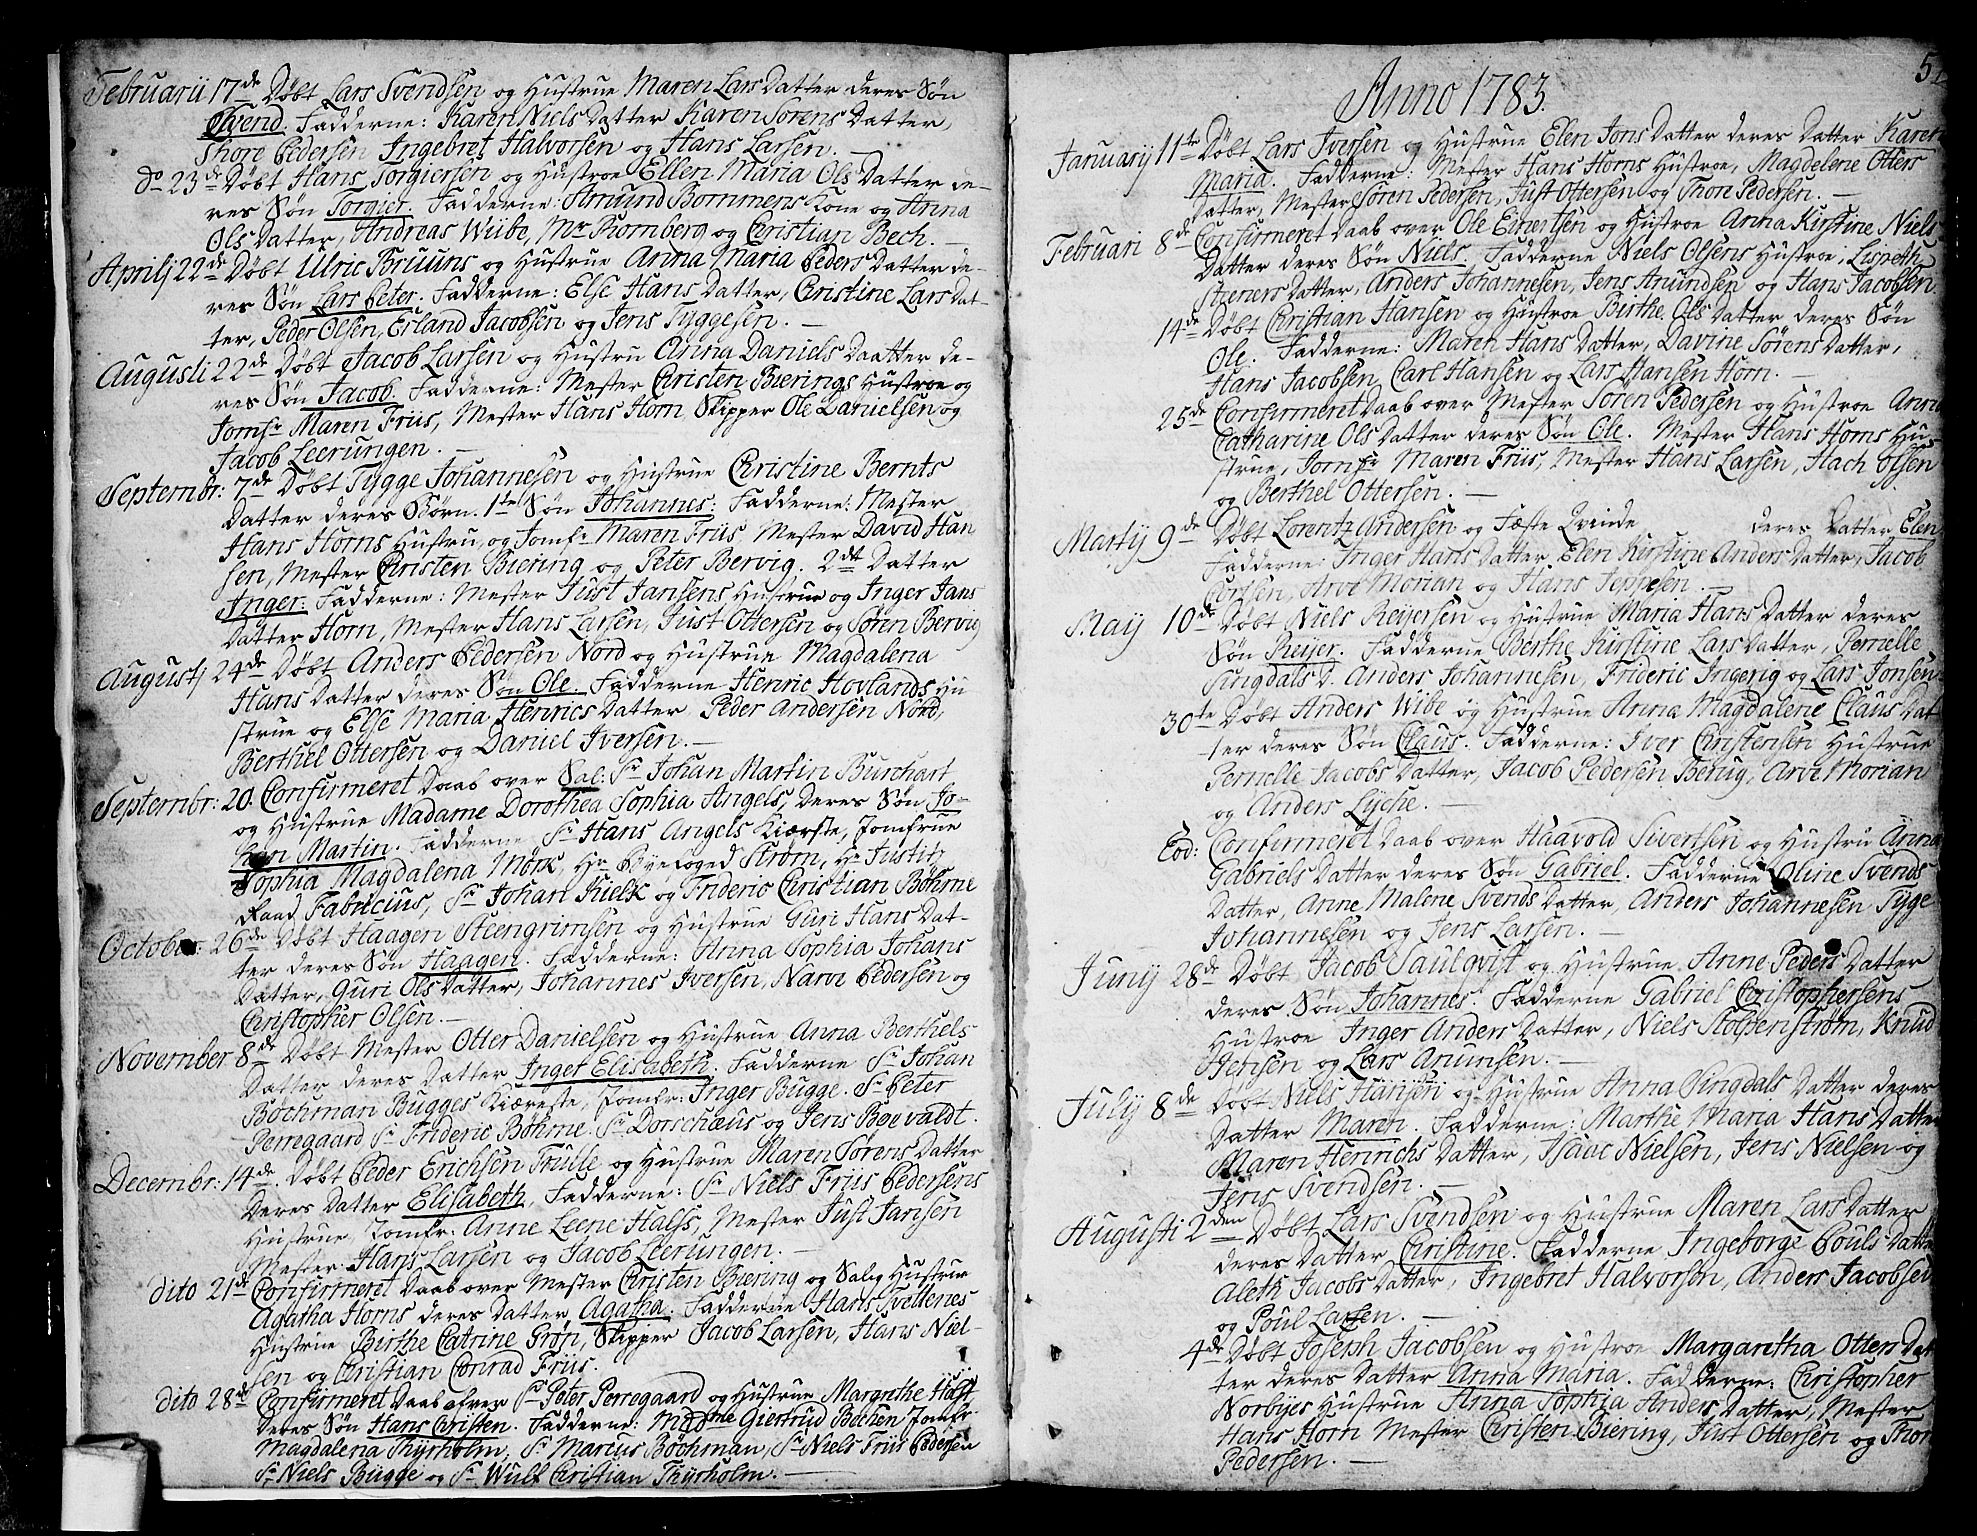 Februarii 17de Døbt Lars Svendsen og Hustrue Maren Lars Datter deres Søn
Svend. Fadderne: Karen Niels Datter Karen Sørens Datter,
Thore Pedersen Ingebret Halvorsen og Hans Larsen. —
do 23de Døbt Hans Torgiersen og Hustroe Ellen Maria Ols Datter de-
res Søn Torgier. Fadderne: Amund Bommens Kone og Anna
Ols Datter, Andreas Wiibe, Mr Romberg og Christian Bech. —
Aprilj 22de Døbt Ulric Bruuns og Hustrue Anna Maria Peders Datter de-
res Søn Lars Peter. Fadderne: Else Hans Datter, Christine Lars Dat-
ter, Peder Olsen, Erland Jacobsen og Jens Tyggesen. —
Augusti 22de Døbt Jacob Larsen og Hustru Anna Daniels Daatter de-
res Søn Jacob. Fadderne: Mester Christen Bierings Hustroe og
Jomfr Maren Friis, Mester Hans Horn Skipper Ole Danielsen og
Jacob Leerungen. —
Septembr: 7de Døbt Tygge Johannesen og Hustrue Christine Bernts
Datter deres Børn. 1te Søn Johannes: Fadderne: Mester
Hans Horns Hustru, og Jomfr Maren Friis, Mester David Han
sen, Mester Christen Biering og Peter Bervig. 2det Datter
Inger. Fadderne: Mester Just Jansens Hustrue og Inger Jans
Datter Horn, Mester Hans Larsen, Just Ottersen og Søren Bervig
Augustj 24de Døbt Anders Pedersen Nord og Hustrue Magdalena
Hans Datter deres Søn Ole. Fadderne Henric Hovlands Hu
strue og Else Maria Henrics Datter, Peder Andersen Nord,
Berthel Ottersen og Daniel Iversen. —
Septembr: 20. Confirmeret Daab over Sal: Sr Johan Martin Burchart
og Hustrue Madame Dorothea Sophia Angels, Deres Søn Jo-
han Martin. Fadderne Sr Hans Angels Kiærste, Jomfrue
Sophia Magdalena Mørk, Hr Byefoged Strøm, Hr Justitz
Raad Fabricius, Sr Johan Kielk og Frideric Christian Bøhme
October: 26de Døbt Haagen Steengrimsen og Hustrue Guri Hans Dat-
ter deres Søn Haagen. Fadderne: Anna Sophia Johans
Datter, Guri Ols Datter, Johannes Iversen, Narve Pedersen og
Christopher Olsen. —
November 8de Døbt Mester Otter Danielsen og Hustrue Anna Berthels
Datter deres Datter Inger Elisabeth. Fadderne Sr Johan
Bochman Bugges Kiæreste, Jomfr: Inger Bugge. Sr Peter
Perregaard Sr Frideric Bøhme. Sr Dorschæus og Jens Bøevaldt.
Decembr: 14de. Døbt Peder Erichsen Trulle og Hustrue Maren Sørens Datter
Deres Datter Elisabeth, Fadderne: Sr Niels Friis Pedersens
Hustrue, Jomfr: Anne Leene Halss, Mester Just Jansen
Mester Hans Larsen og Jacob Leerungen. —
dito 21de Confirmeret Daab over Mester Christen Biering og Salig Hustrue
Agatha Horns deres Datter Agatha. Fadderne Hans Tvettenes
Hustrue Birthe Catrine Frøn, Skipper Jacob Larsen, Hans Niel-
sen og Christian Conrad Friis.
dito 28de Confirmeret Daab ofver Sr Peter Perregaard og Hustrue Margrethe Holst
Deres Søn Hans Christen. Fadderne: Madme Giertrud Bochen Jomfr.
Magdalena Thyrholm, Sr Marcus Bochman, Sr Niels Friis Pedersen
Sr Niels Bugge og Sr Wulf Christian Thyrholm. —
5
Anno 1783.
Januarij 11te Døbt Lars Iversen og Hustrue Elen Jons Datter deres Datter Karen
Maria. Fadderne: Mester Hans Horns Hustroe, Magdelene Otters
Datter, Mester Søren Pedersen, Just Ottersen og Thore Pedersen. —
Februari 8de Confirmeret Daab over Ole Einertsen og Hustroe Anna Kirstine Niels
Datter deres Søn Niels. Fadderne Niels Olsens Hustroe, Lisbeth
Steners Datter, Anders Johannesen, Jens Amundsen og Hans Jacobsen
14de Døbt Christian Hansen og Hustroe Birthe Ols Datter deres Søn
Ole. Fadderne: Maren Hans Datter, Davine Sørens Datter,
Hans Jacobsen, Carl Hansen og Lars Hansen Horn. —
25de Confirmeret Daab over Mester Søren Pedersen og Hustroe Anna
Catharine Ols Datter deres Søn Ole. Mester Hans Horns Hu-
strue, Jomfr Maren Friis, Mester Hans Larsen, Hach Olsen
og Berthel Ottersen. —
Martij 9de Døbt Lorentz Andersen og Fæste Qvinde deres Datter Elen
Fadderne: Inger Hans Datter, Elen Kirstine Anders Datter, Jacob
Cortsen, Arve Morian og Hans Jeppesen. —
Maij 10de Døbt Niels Reijersen og Hustrue Maria Hans Datter deres
Søn Reijer. Fadderne Berthe Kirstine Lars Datter, Pernelle
Singdals D. Anders Johannesen, Frideric Ingerig og Lars Jonsen
30te Døbt Anders Wibe og Hustrue Anna Magdalene Claus Dat
ter deres Søn Claus. Fadderne: Iver Christensen Hustrue
Pernelle Jacobs Datter, Jacob Pedersen Berug, Arve Morian
og Anders Lyche. —
Eod: Confirmeret Daab over Haavold Sivertsen og Hustru Anna
Gabriels Datter deres Søn Gabriel. Fadderne Oline Svends
Datter, Anne Malene Svends Datter, Anders Johannesen Tyge
Johannesen og Jens Larsen. —
Junij 28de Døbt Jacob Saulqvist og Hustrue Anne Peders Datter
deres Søn Johannes. Fadderne Gabriel Christophersens
Hustroe Inger Anders Datter, Niels Stoltenstrøm, Knud
Jensen og Lars Anunsen. —
Julij 8de Døbt Niels Hansen og Hustrue Anna Singdals Datter deres
Datter Maren. Fadderne: Marthe Maria Hans Datter
Maren Henrichs Datter, Isaac Nielsen, Jens Nielsen og
Jens Svendsen. —
Augusti 2den Døbt Lars Svendsen og Hustrue Maren Lars Datter
deres Datter Christine. Fadderne Ingeborge Pouls Datter
Aleth Jacobs Datter, Ingebret Halvorsen, Anders Jacobsen
og Poul Larsen. —
4de Døbt Joseph Jacobsen og Hustroe Margaretha Otters Dat
ter deres Datter Anna Maria. Fadderne: Christopher
Norbyes Hustrue Anna Sophia Anders Datter, Mester
Hans Horn Mester Christen Biering, Just Ottersen og Thore
Pedersen. —